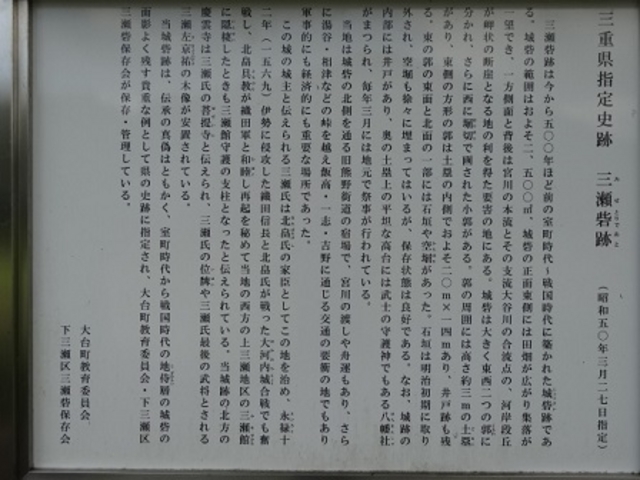 三重県指定史跡 三瀬砦跡 (昭和五〇年三月二七日指定)
みせとりであと
三瀬砦跡は今から五〇〇年ほど前の室町時代~戦国時代に築かれた城砦跡であ
る。城砦の範囲はおよそ二、五〇〇㎡、城砦の正面東側には田畑が広がり集落が
一望でき、一方側面と背後は宮川の本流とその支流大谷川の合流点の、河岸段丘
が岬状の断崖となる地の利を得た要害の地にある。城砦は大きく東西二つの郭に
分かれ、さらに西に堀切で画された小郭がある。郭の周囲には高さ約三mの土塁
があり、東側の方形の郭は土塁の内側でおよそ二〇m×一四mあり、井戸跡も残
る。東の郭の東面と北面の一部には石垣や空堀があった。石垣は明治初期に取り
外され、空堀も徐々に埋まってはいるが、保存状態は良好である。なお、城跡の
内部には井戸があり、奥の土塁上の平坦な高台には武士の守護神でもある八幡社
がまつられ、毎年三月には地元で祭事が行われている。
当地は城砦の北側を通る旧熊野街道の宿場で、宮川の渡しや舟運もあり、さら
に湯谷・相津などの峠を越え飯高・一志・吉野に通じる交通の要衝の地でもあり
軍事的にも経済的にも重要な場所であった。
この城の城主と伝えられる三瀬氏は北畠氏の家臣としてこの地を治め、永禄十
二年(一五六九)伊勢に侵攻した織田信長と北畠氏が戦った大河内城合戦でも奮
戦し、北畠具教が織田軍と和睦し再起を秘めて当地の西方の上三瀬地区の三瀬館
に隠棲したときも三瀬館守護の支柱となったと伝えられている。当城跡の北方の
慶雲寺は三瀬氏の菩提寺と伝えられ、三瀬氏の位牌や三瀬氏最後の武将とされる
三瀬左京祐の木像が安置されている。
当城砦跡は、伝承の真偽はともかく、室町時代から戦国時代の地侍層の城砦の
面影よく残す貴重な例として県の史跡に指定され、大台町教育委員会・下三瀬区
三瀬砦保存会が保存・管理している。
大台町教育委員会
下三瀬区三瀬砦保存会